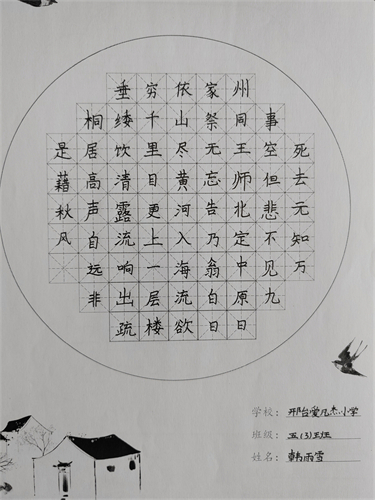 死去元知万
事空但悲不见九
州同王师北定中原日
家祭无忘告乃翁白日
依山尽黄河入海流欲
穷千里目更上一层楼
垂绫饮清露流响出疏
桐居高声自远非
是藉秋风
学校：邢台爱凡杰小学
班级：五(3)班
姓名：韩雨雪